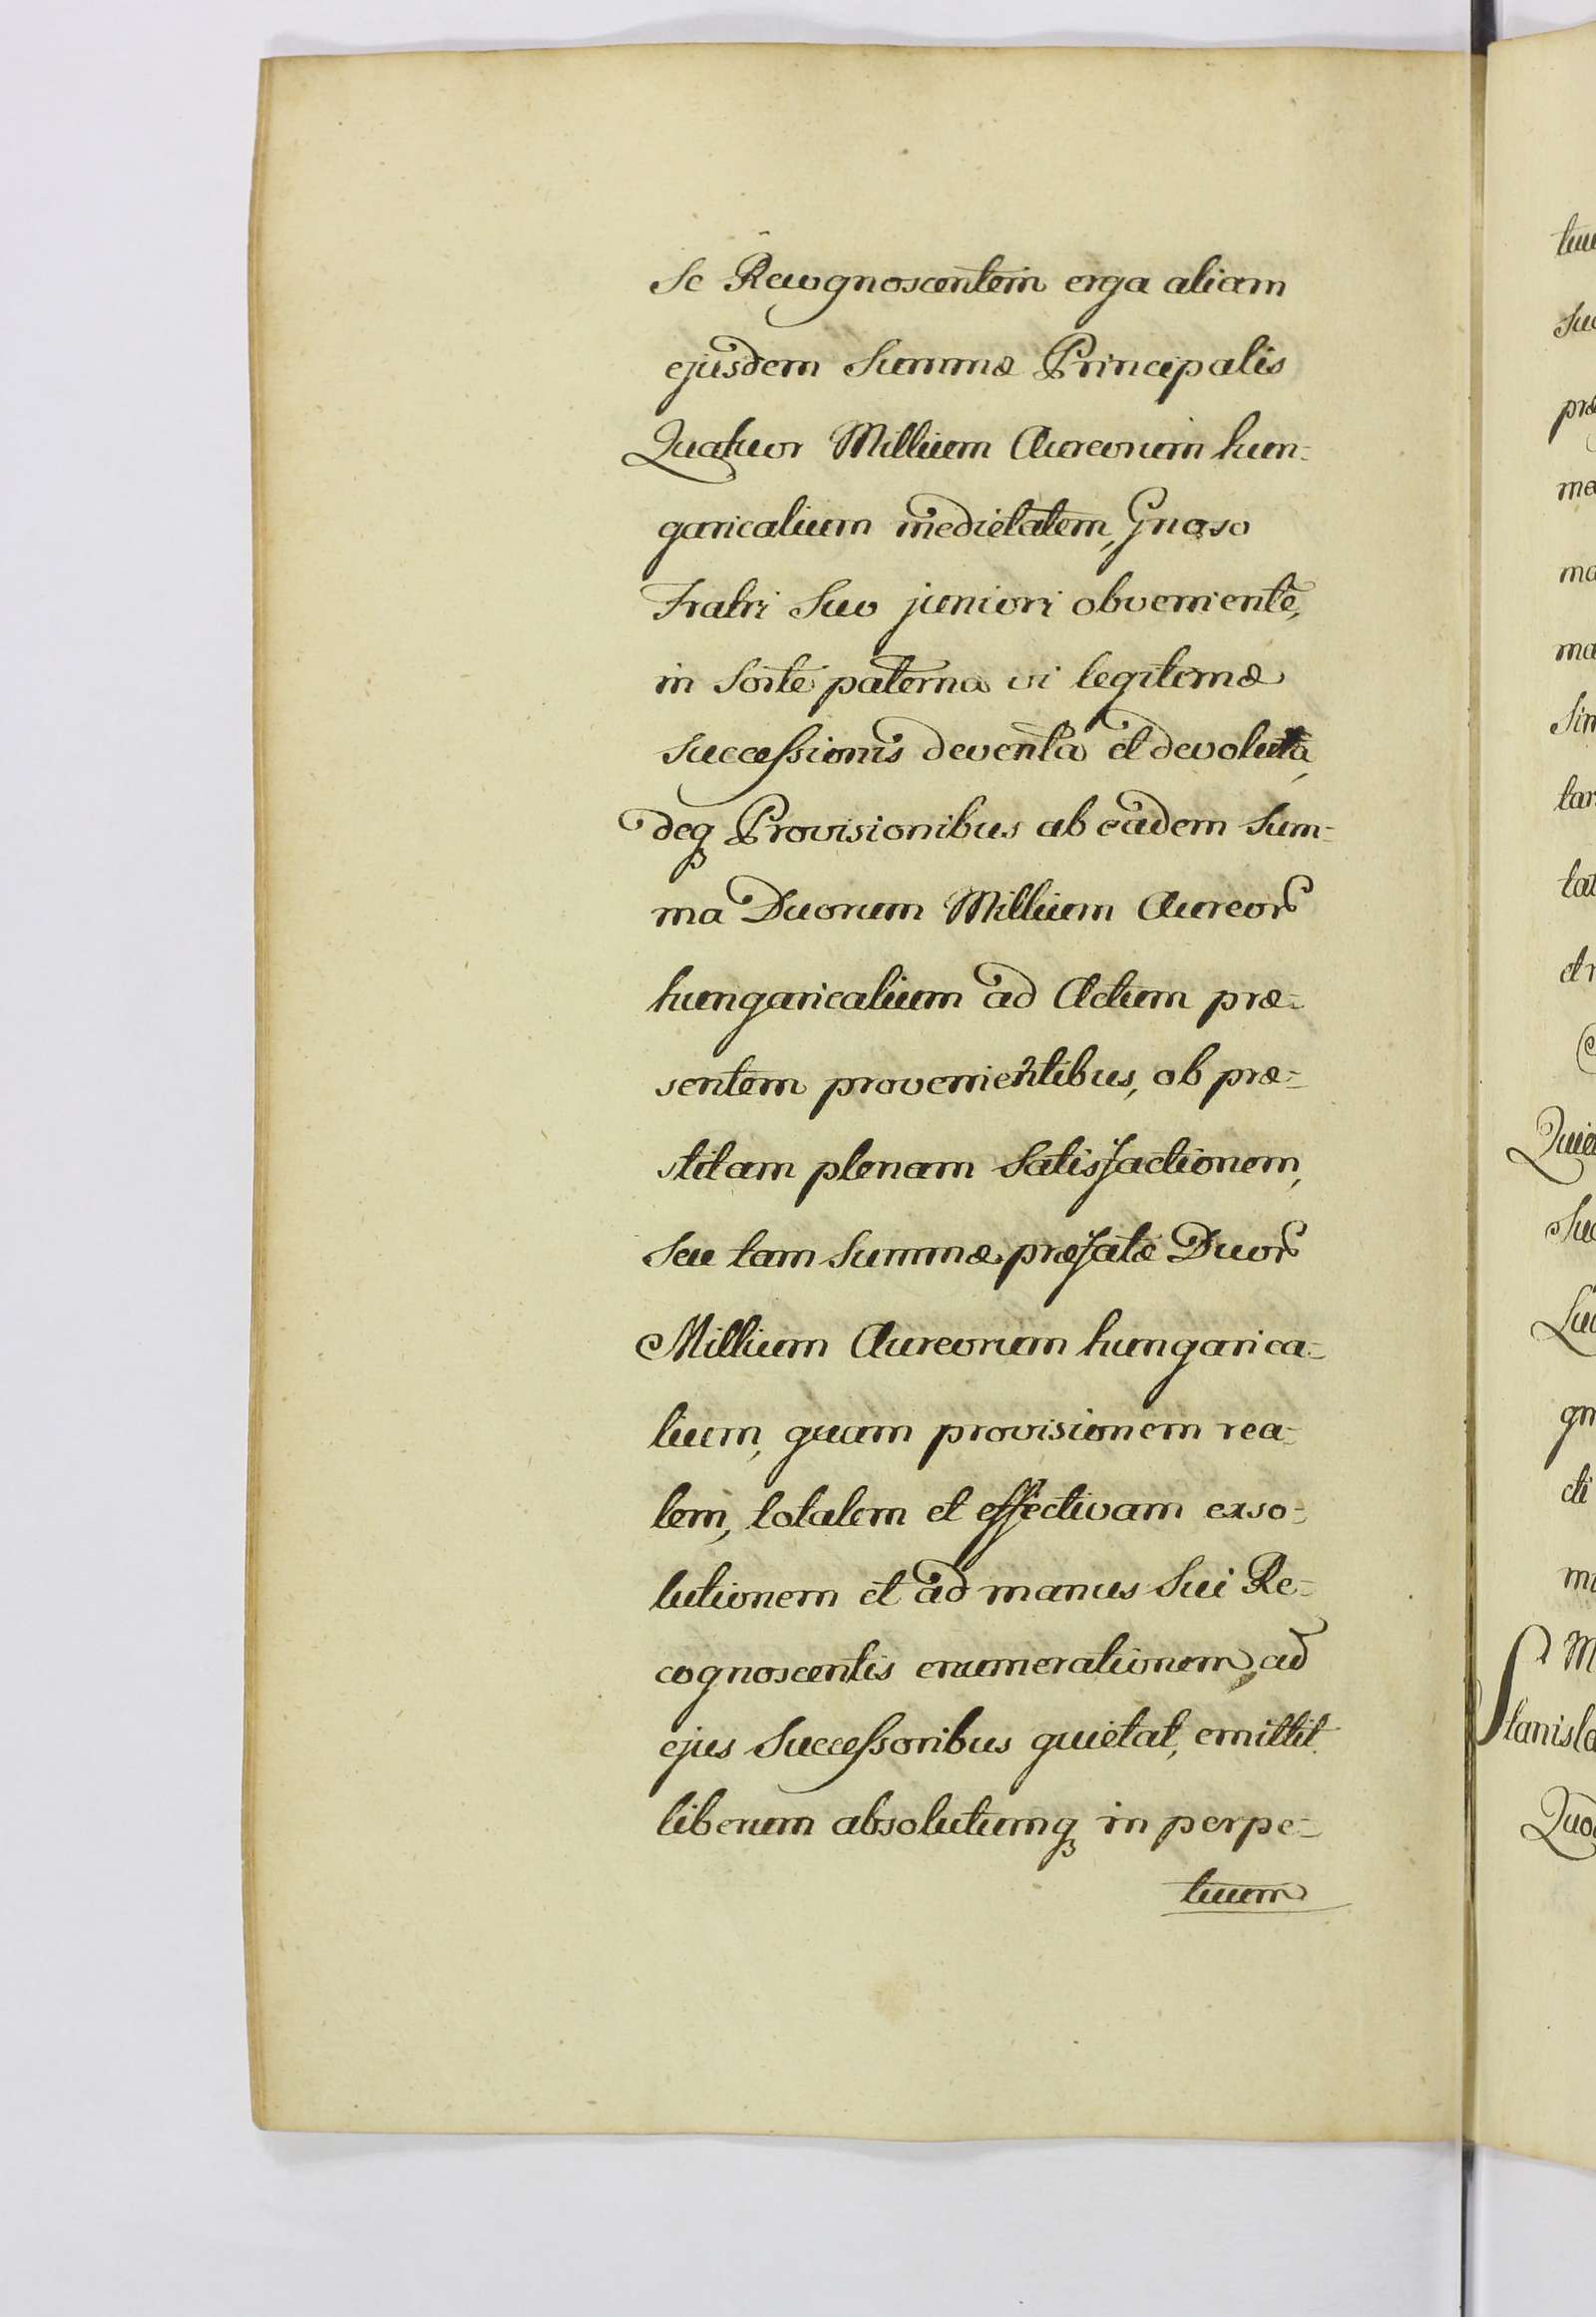 Se Recognoscentem erga aliam
ejusdem Summæ Principalis
Quatuor Millium Aureorum hun=
garicalium medietatem, Gnoso
Fratri Suo juniori obvenientē,
in Sorte paterna vi legitimæ
Successionis deventa et devoluta,
deq Provisionibus ab eadem Sum=
ma Duorum Millium Aureor
hungaricalium ad Actum præ=
sentem provenientibus, ob præ=
stitam plenam Satisfactionem,
Seu tam Summæ præfatæ Duor
Millium Aureorum hungarica=
lium, quam provisionem rea=
lem, totalem et effectivam exso=
lutionem et ad manus Sui Re=
cognoscentis enumerationem, ad
ejus Successoribus quietat, emittit
liberum absolutumq in perpe=
tuum
tuu
Suc
præ
ma
ma
Sin
tar
tat
et
Quie
Suc
gn
cti
M
Stanisla
Quod